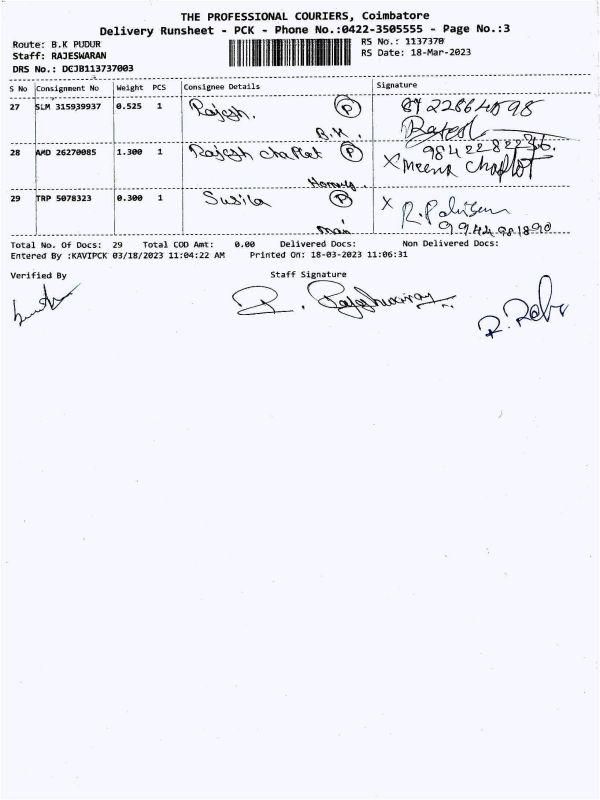 THE PROFESSIONAL COURIERS, Coimbatore
Delivery Runsheet - PCK - Phone No.:0422-3505555 - Page No.:3
Route: B.K PUDUR
RS No.: 1137370
Staff: RAJESWARAN
RS Date: 18-Mar-2023
DRS No.: DCJB113737003
S No Consignment No Weight PCS Consignee Details Signature
27 SLM 315939937 0.525 1 Rajesh. P
B.K.
28 AMD 26270085 1.300 1 Rajesh chaplat P 9842282236.
Meena Chaplot
29 TRP 5078323 0.300 1 Susila P
9944981890
Total No. Of Docs: 29 Total COD Amt: 0.00 Delivered Docs: Non Delivered Docs:
Entered By :KAVIPCK 03/18/2023 11:04:22 AM Printed On: 18-03-2023 11:06:31
Verified By Staff Signature